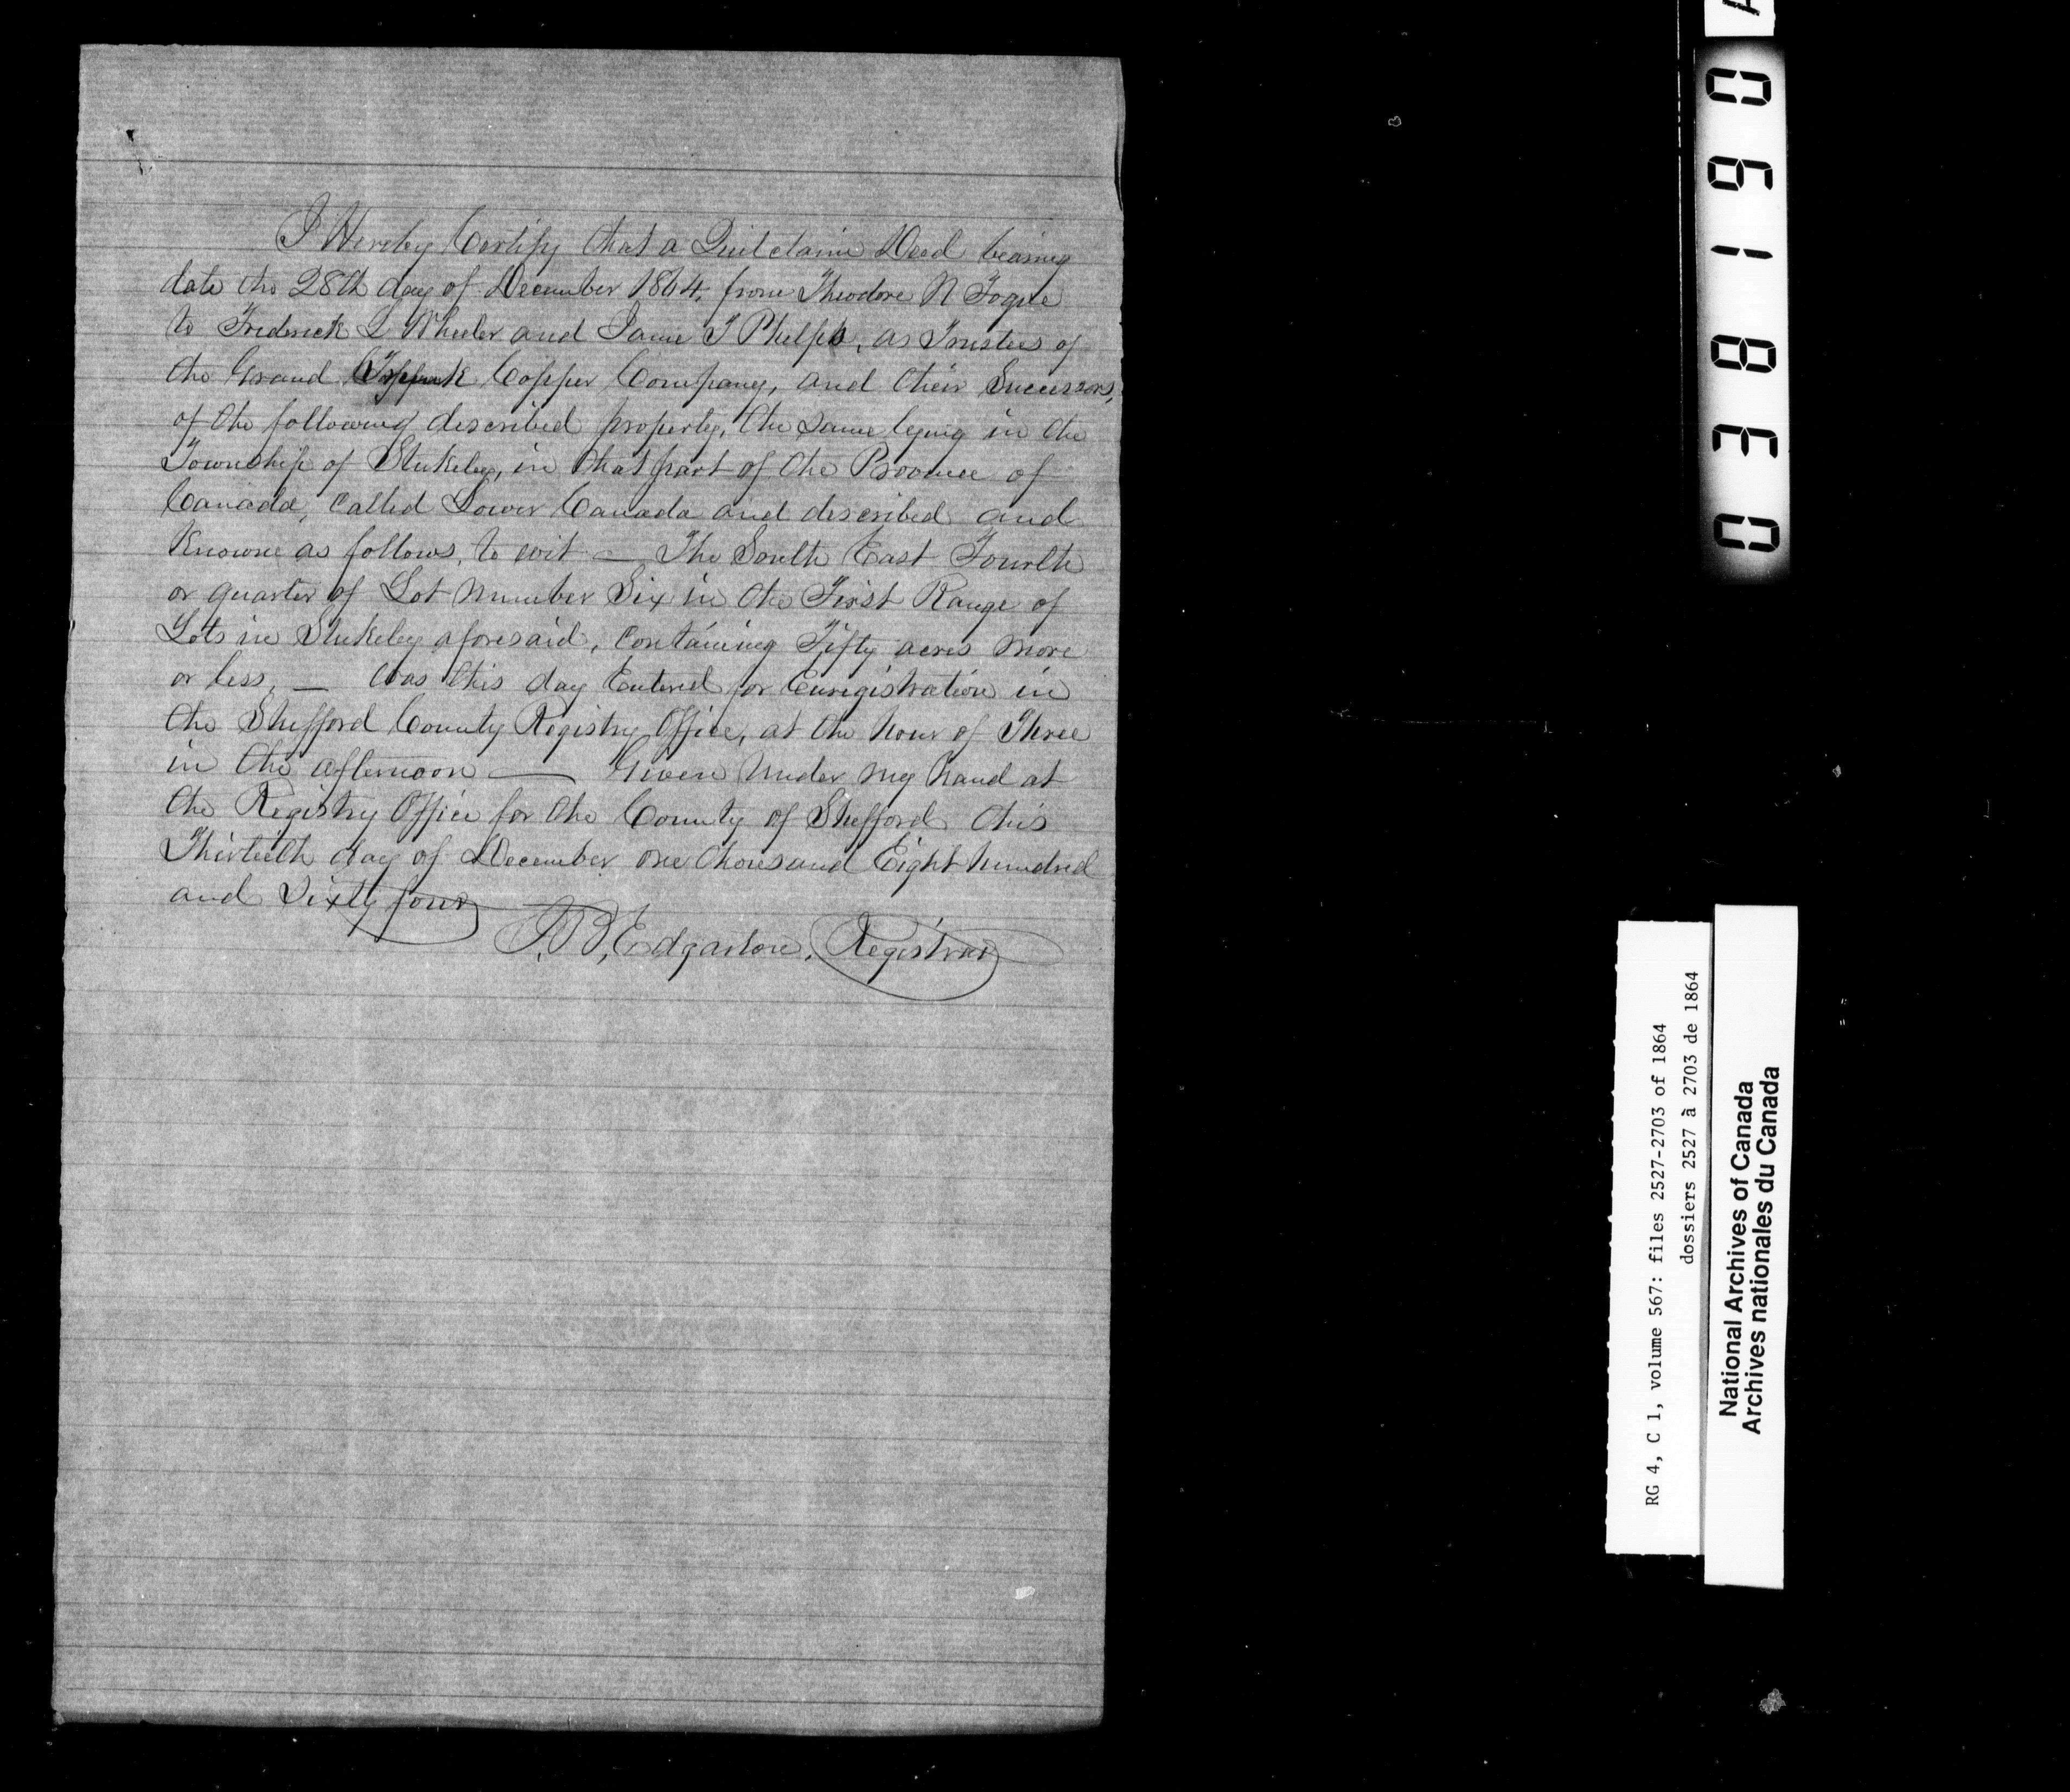 I Hereby Certify that a Quitclaim Deed bearing
date the 28th day of December 1864, from Theodore N Fogue
to Frederick L Wheeler and Jame T Phelps, as Trustees of
the Grand Copper Company, and their Successors,
of the following described property, the same lying in the
Township of Stukeley, in that part of the Province of
Canada, called Lower Canada and described and
Knowne as follows, to wit — The South East Fourth
or quarter of Lot Number Six in the First Range of
Lots in Stukeley aforesaid, containing Fifty acres more
or less, — was this day Entered for Enregistration in
the Shefford County Registry Office, at the hour of Three
in the afternoon — Given Under my hand at
the Registry Office for the County of Shefford this
Thirtieth day of December one thousand Eight hundred
and Sixty four
Edgarton, Registrar
038190
RG 4, C 1, volume 567: files 2527-2703 of 1864
dossiers 2527 à 2703 de 1864
National Archives of Canada
Archives nationales du Canada